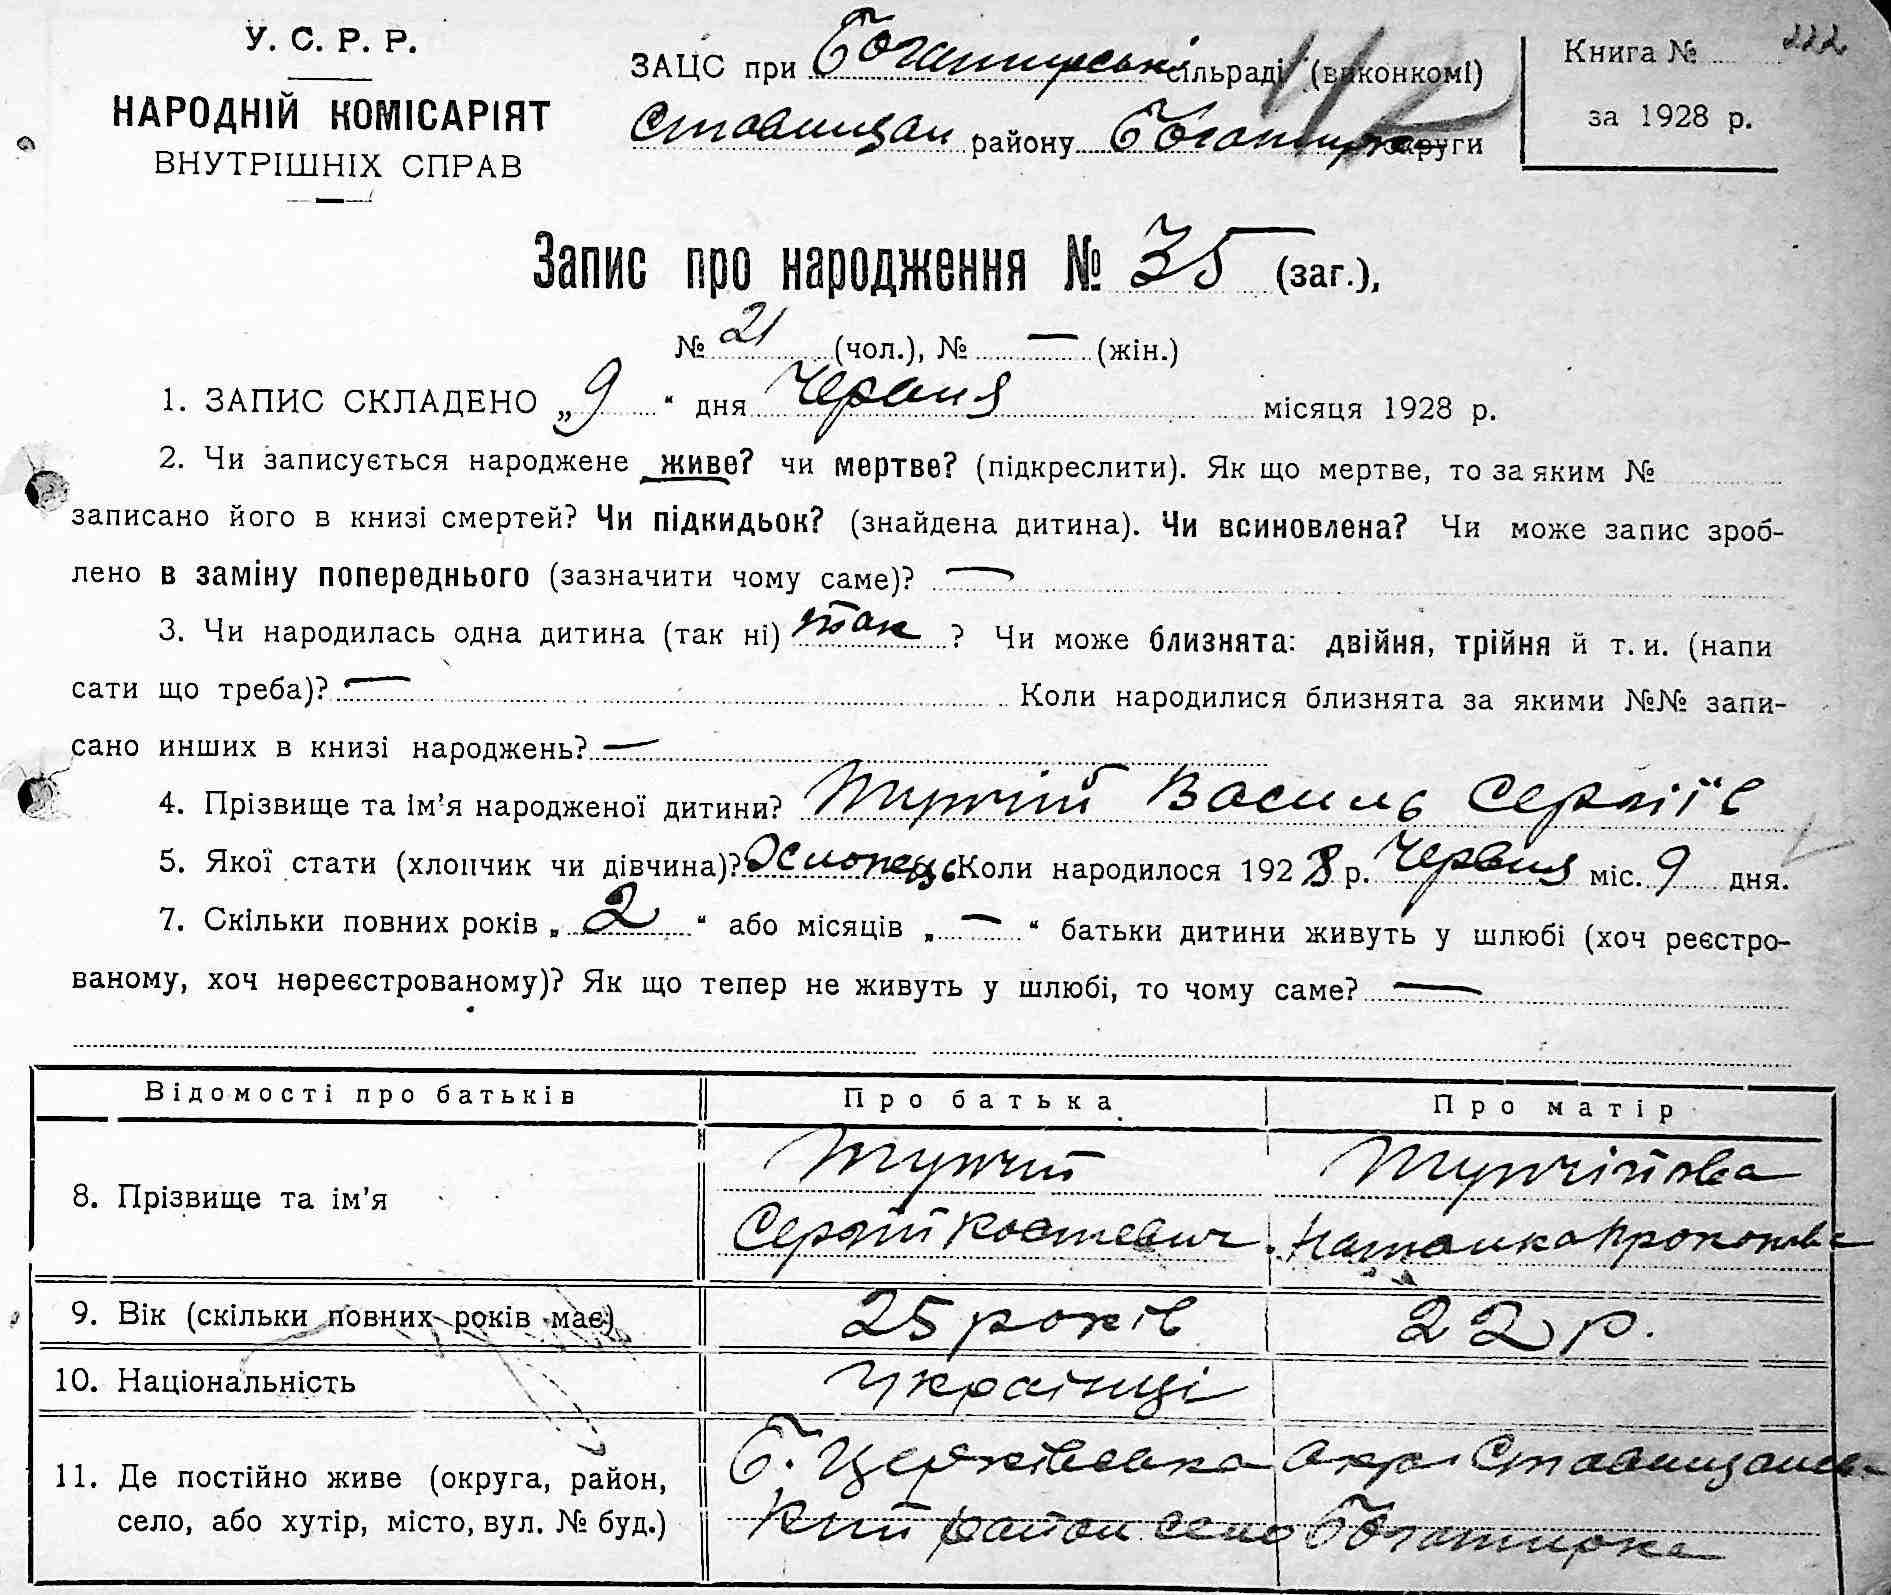 У. С. Р. Р.
НАРОДНІЙ КОМІСАРІЯТ
ВНУТРІШНІХ СПРАВ
ЗАЦС при Богатирські сільраді (виконкомі)
Ставищан району Богатирка округи
Книга № 222
за 1928 р.
112
Запис про народження № 35 (заг.),
№ 21 (чол.), № — (жін.)
1. ЗАПИС СКЛАДЕНО „9“ дня Червня місяця 1928 р.
2. Чи записується народжене живе? чи мертве? (підкреслити). Як що мертве, то за яким №
записано його в книзі смертей? Чи підкидьок? (знайдена дитина). Чи всиновлена? Чи може запис зроб-
лено в заміну попереднього (зазначити чому саме)? —
3. Чи народилась одна дитина (так ні) так ? Чи може близнята: двійня, трійня й т. и. (напи
сати що треба)? — Коли народилися близнята за якими №№ запи-
сано инших в книзі народжень? —
4. Прізвище та ім’я народженої дитини? Тупчій Василь Сергіїв
5. Якої стати (хлопчик чи дівчина)? Хлопець Коли народилося 1928 р. Червня міс. 9 дня.
7. Скільки повних років „2“ або місяців „—“ батьки дитини живуть у шлюбі (хоч реєстро-
ваному, хоч нереєстрованому)? Як що тепер не живуть у шлюбі, то чому саме? —
Відомості про батьків Про батька Про матір
8. Прізвище та ім’я Тупчий Тупчійова
Сергій Костевич Наталка Прокопова
9. Вік (скільки повних років має) 25 років 22 р.
10. Національність Українці
11. Де постійно живе (округа, район, Б. Церківська окр. Ставищансь-
село, або хутір, місто, вул. № буд.) кий район село Богатирка